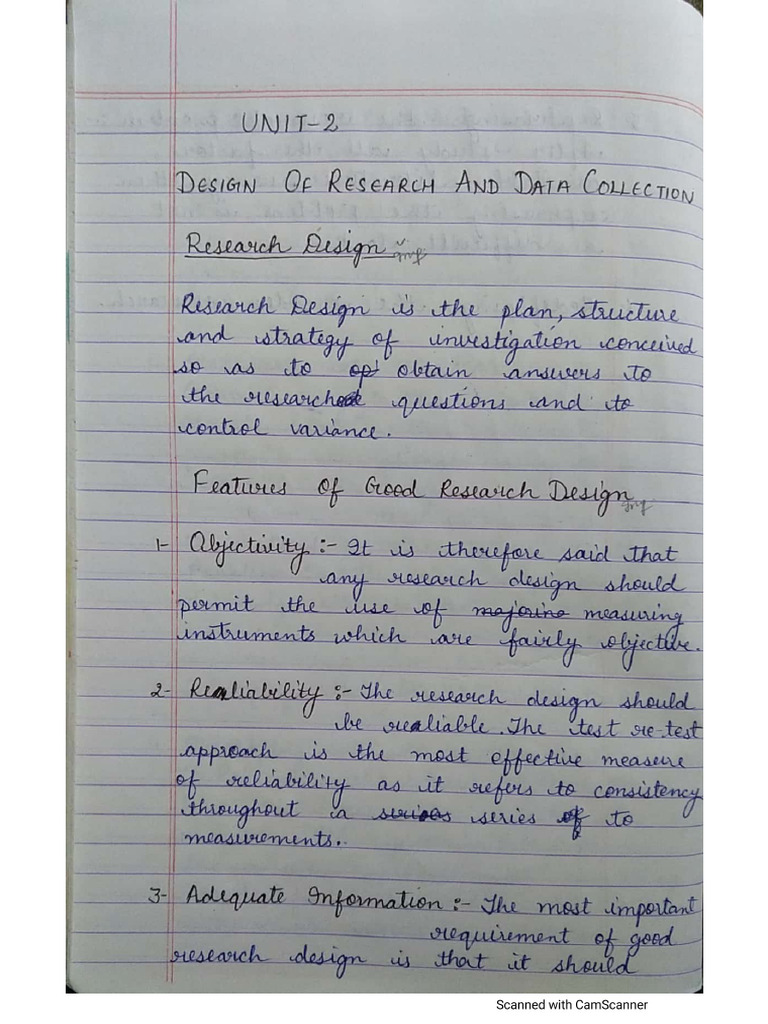 UNIT-2
DESIGN OF RESEARCH AND DATA COLLECTION
Research Design imf
Research Design is the plan, structure
and strategy of investigation conceived
so as to op obtain answers to
the research questions and to
control variance.
Features Of Good Research Design imf
1- Objectivity :- It is therefore said that
any research design should
permit the use of majoring measuring
instruments which are fairly objective.
2- Realiability :- The research design should
be realiable. The test re-test
approach is the most effective measure
of reliability as it refers to consistency
throughout a serious series of to
measurements.
3- Adequate Information :- The most important
requirement of good
research design is that it should
Scanned with CamScanner